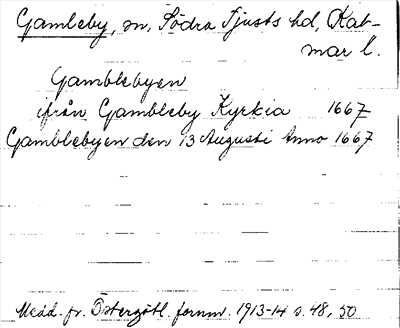 Gamleby, sn, Södra Tjusts hd, Kal-
mar l.
Gamblebyen
ifrån Gambleby Kyrkia 1667
Gamblebyen den 13 Augusti Anno 1667
Medd. fr. Östergötl. fornm. 1913-14 s. 48, 50